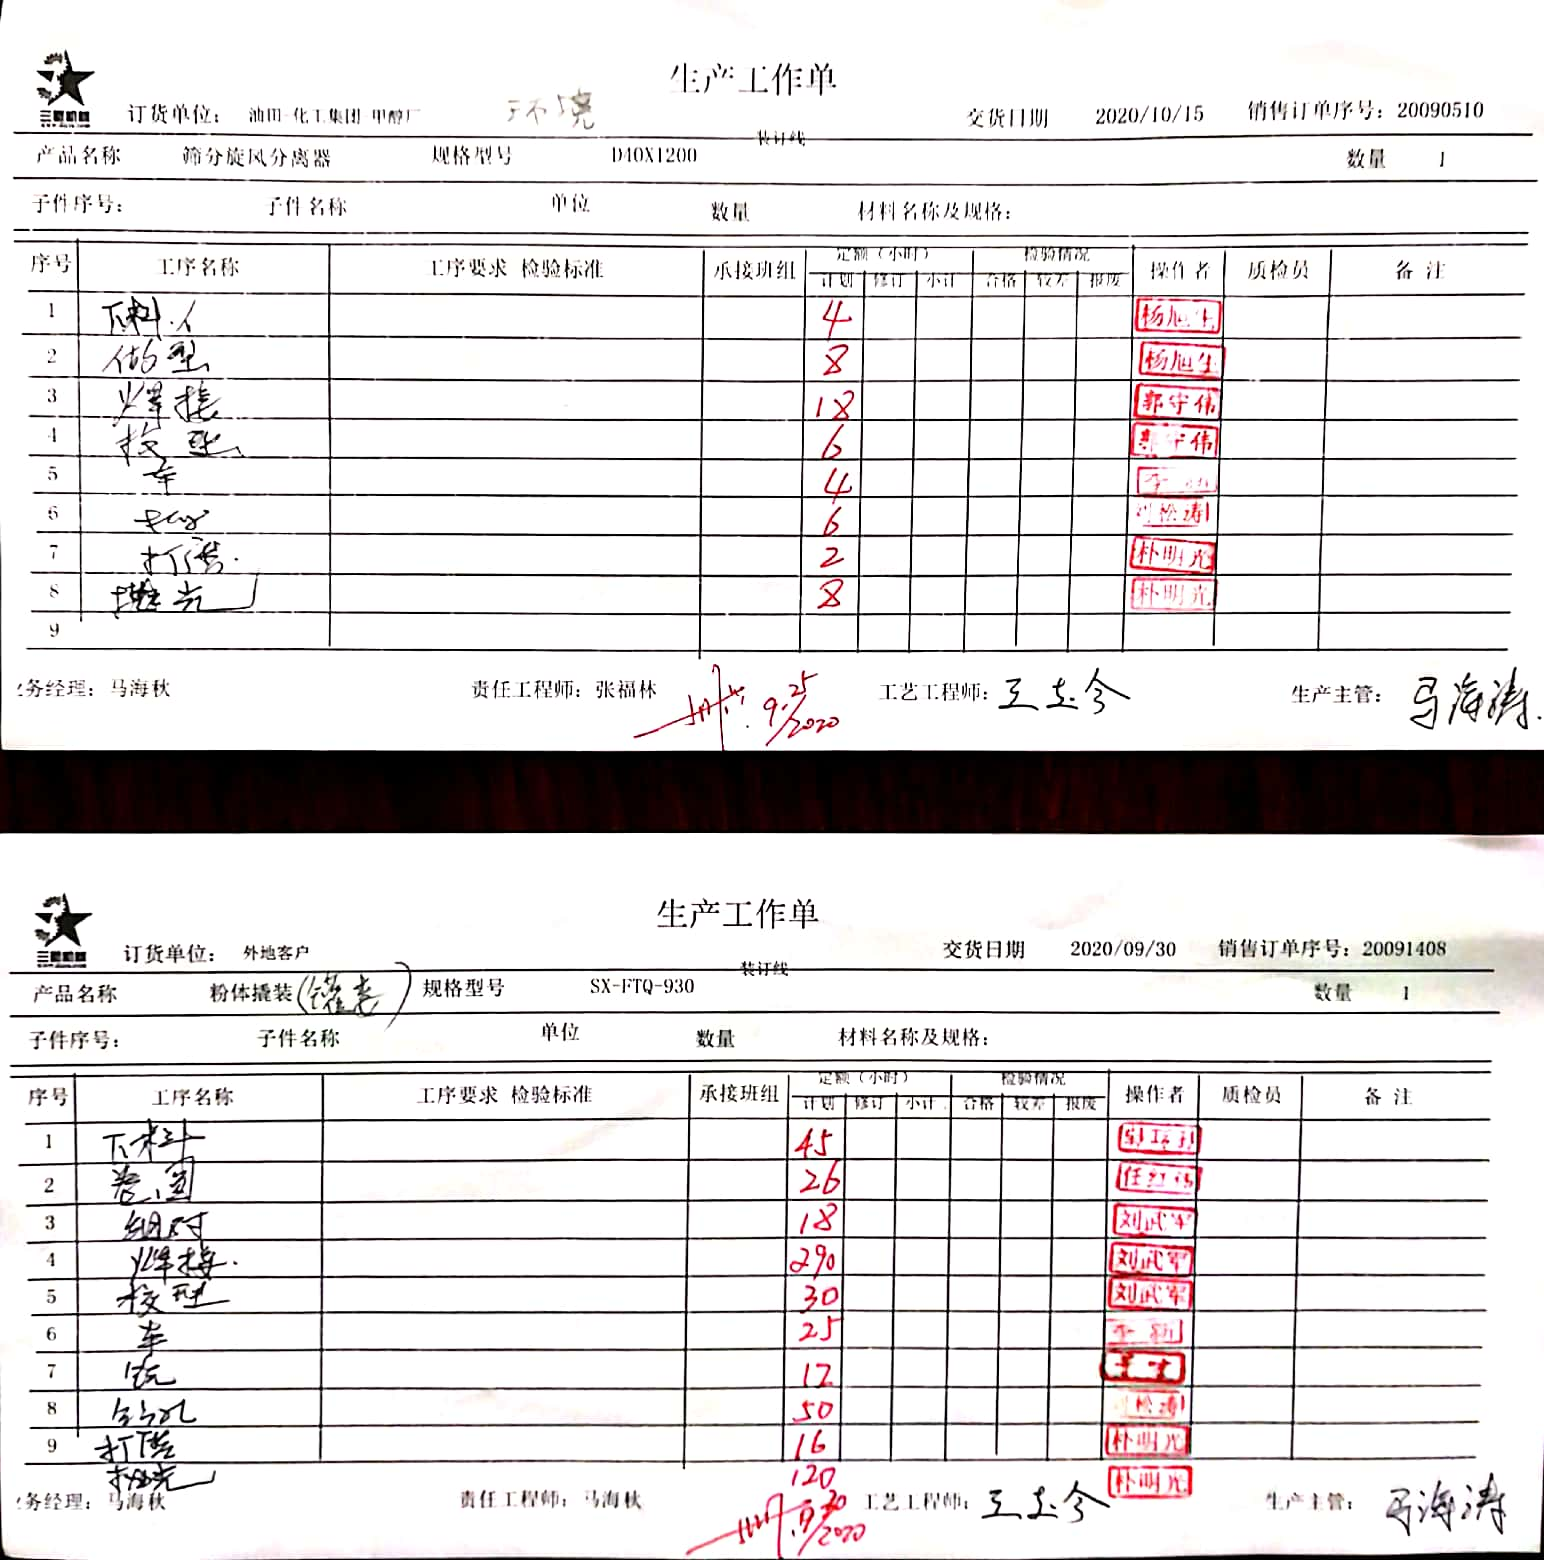 生产工作单
三星机械
订货单位： 油田-化工集团-甲醇厂 交货日期 2020/10/15 销售订单序号：20090510
装订线
产品名称 筛分旋风分离器 规格型号 D40X1200 数量 1
子件序号： 子件名称 单位 数量 材料名称及规格：
序号 工序名称 工序要求 检验标准 承接班组 定额（小时） 检验情况 操作者 质检员 备 注
计划 修订 小计 合格 较差 报废
1 下料 4 杨旭生
2 做型 8 杨旭生
3 焊接 18 郭守伟
4 校型 6 郭守伟
5 车 4 李
6 6 刘松涛
7 打磨 2 朴明光
8 抛光 8 朴明光
9
业务经理：马海秋 责任工程师：张福林 9.25/2020 工艺工程师：王志今 生产主管：马海涛
生产工作单
三星机械
订货单位： 外地客户 交货日期 2020/09/30 销售订单序号：20091408
装订线
产品名称 粉体撬装(罐表) 规格型号 SX-FTQ-930 数量 1
子件序号： 子件名称 单位 数量 材料名称及规格：
序号 工序名称 工序要求 检验标准 承接班组 定额（小时） 检验情况 操作者 质检员 备 注
计划 修订 小计 合格 较差 报废
1 下料 45
2 卷圆 26 任红
3 组对 18 刘武军
4 焊接 290 刘武军
5 校型 30 刘武军
6 车 25 李
7 铣 12
8 钻孔 50 刘松涛
9 打磨 16 朴明光
抛光 120 朴明光
业务经理：马海秋 责任工程师：马海秋 /2020 工艺工程师：王志今 生产主管：马海涛